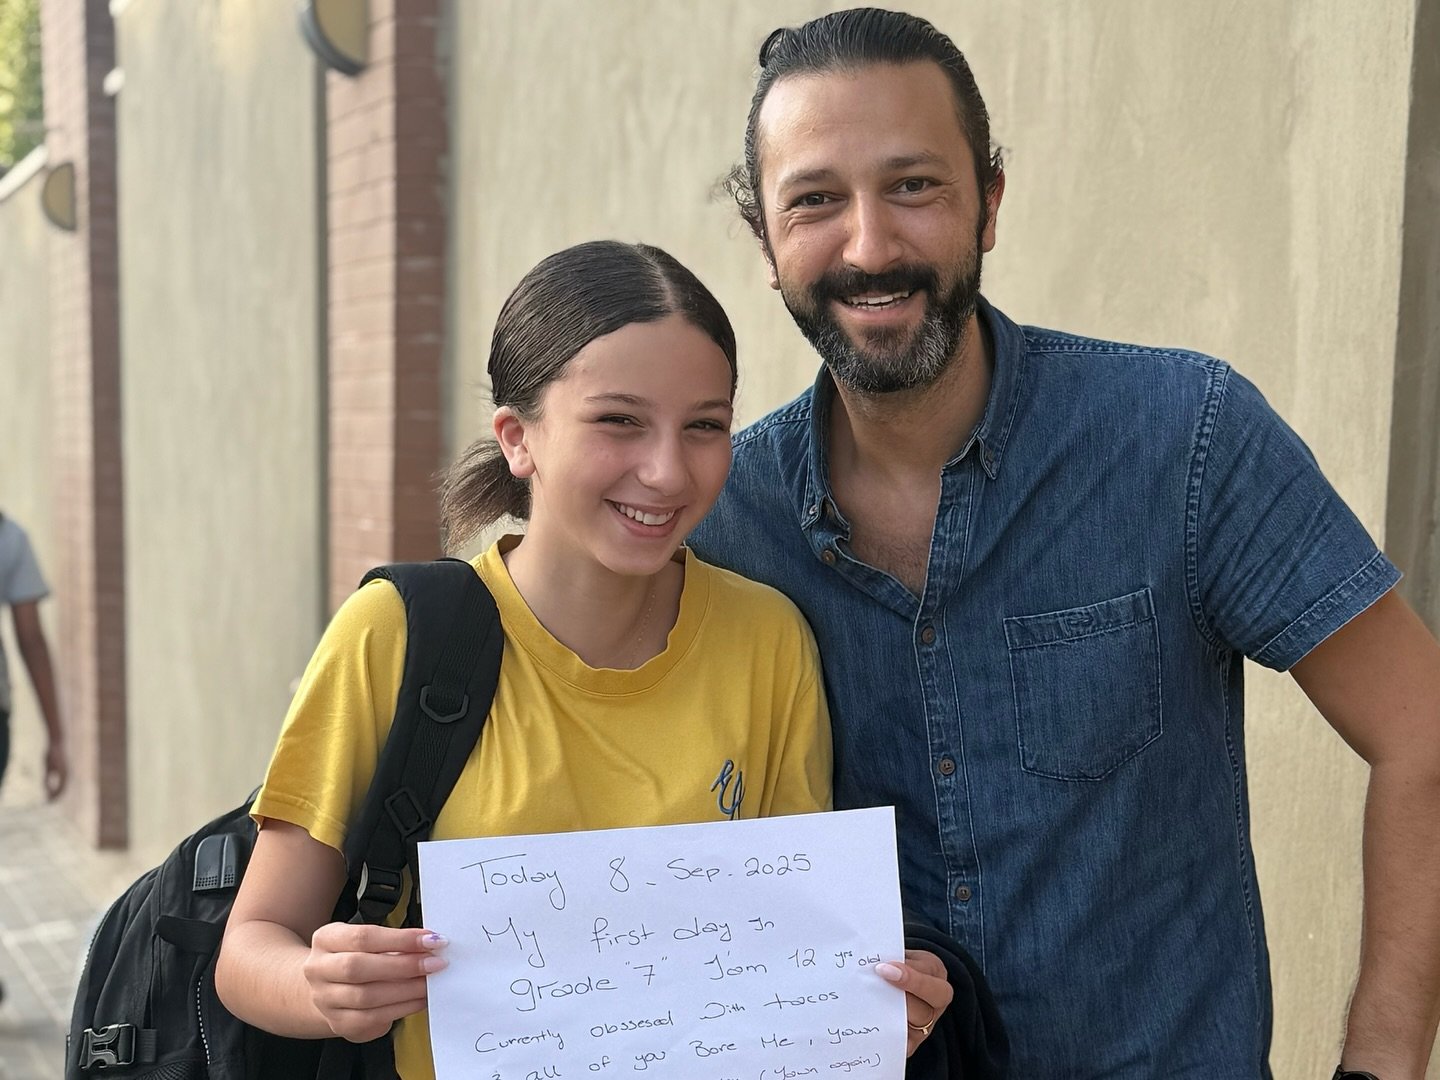 Today 8. Sep. 2025
My first day In
grade "7" I'am 12 yrs old
Currently obssesed With tacos
& all of you Bore Me, yawn
(Yawn again)